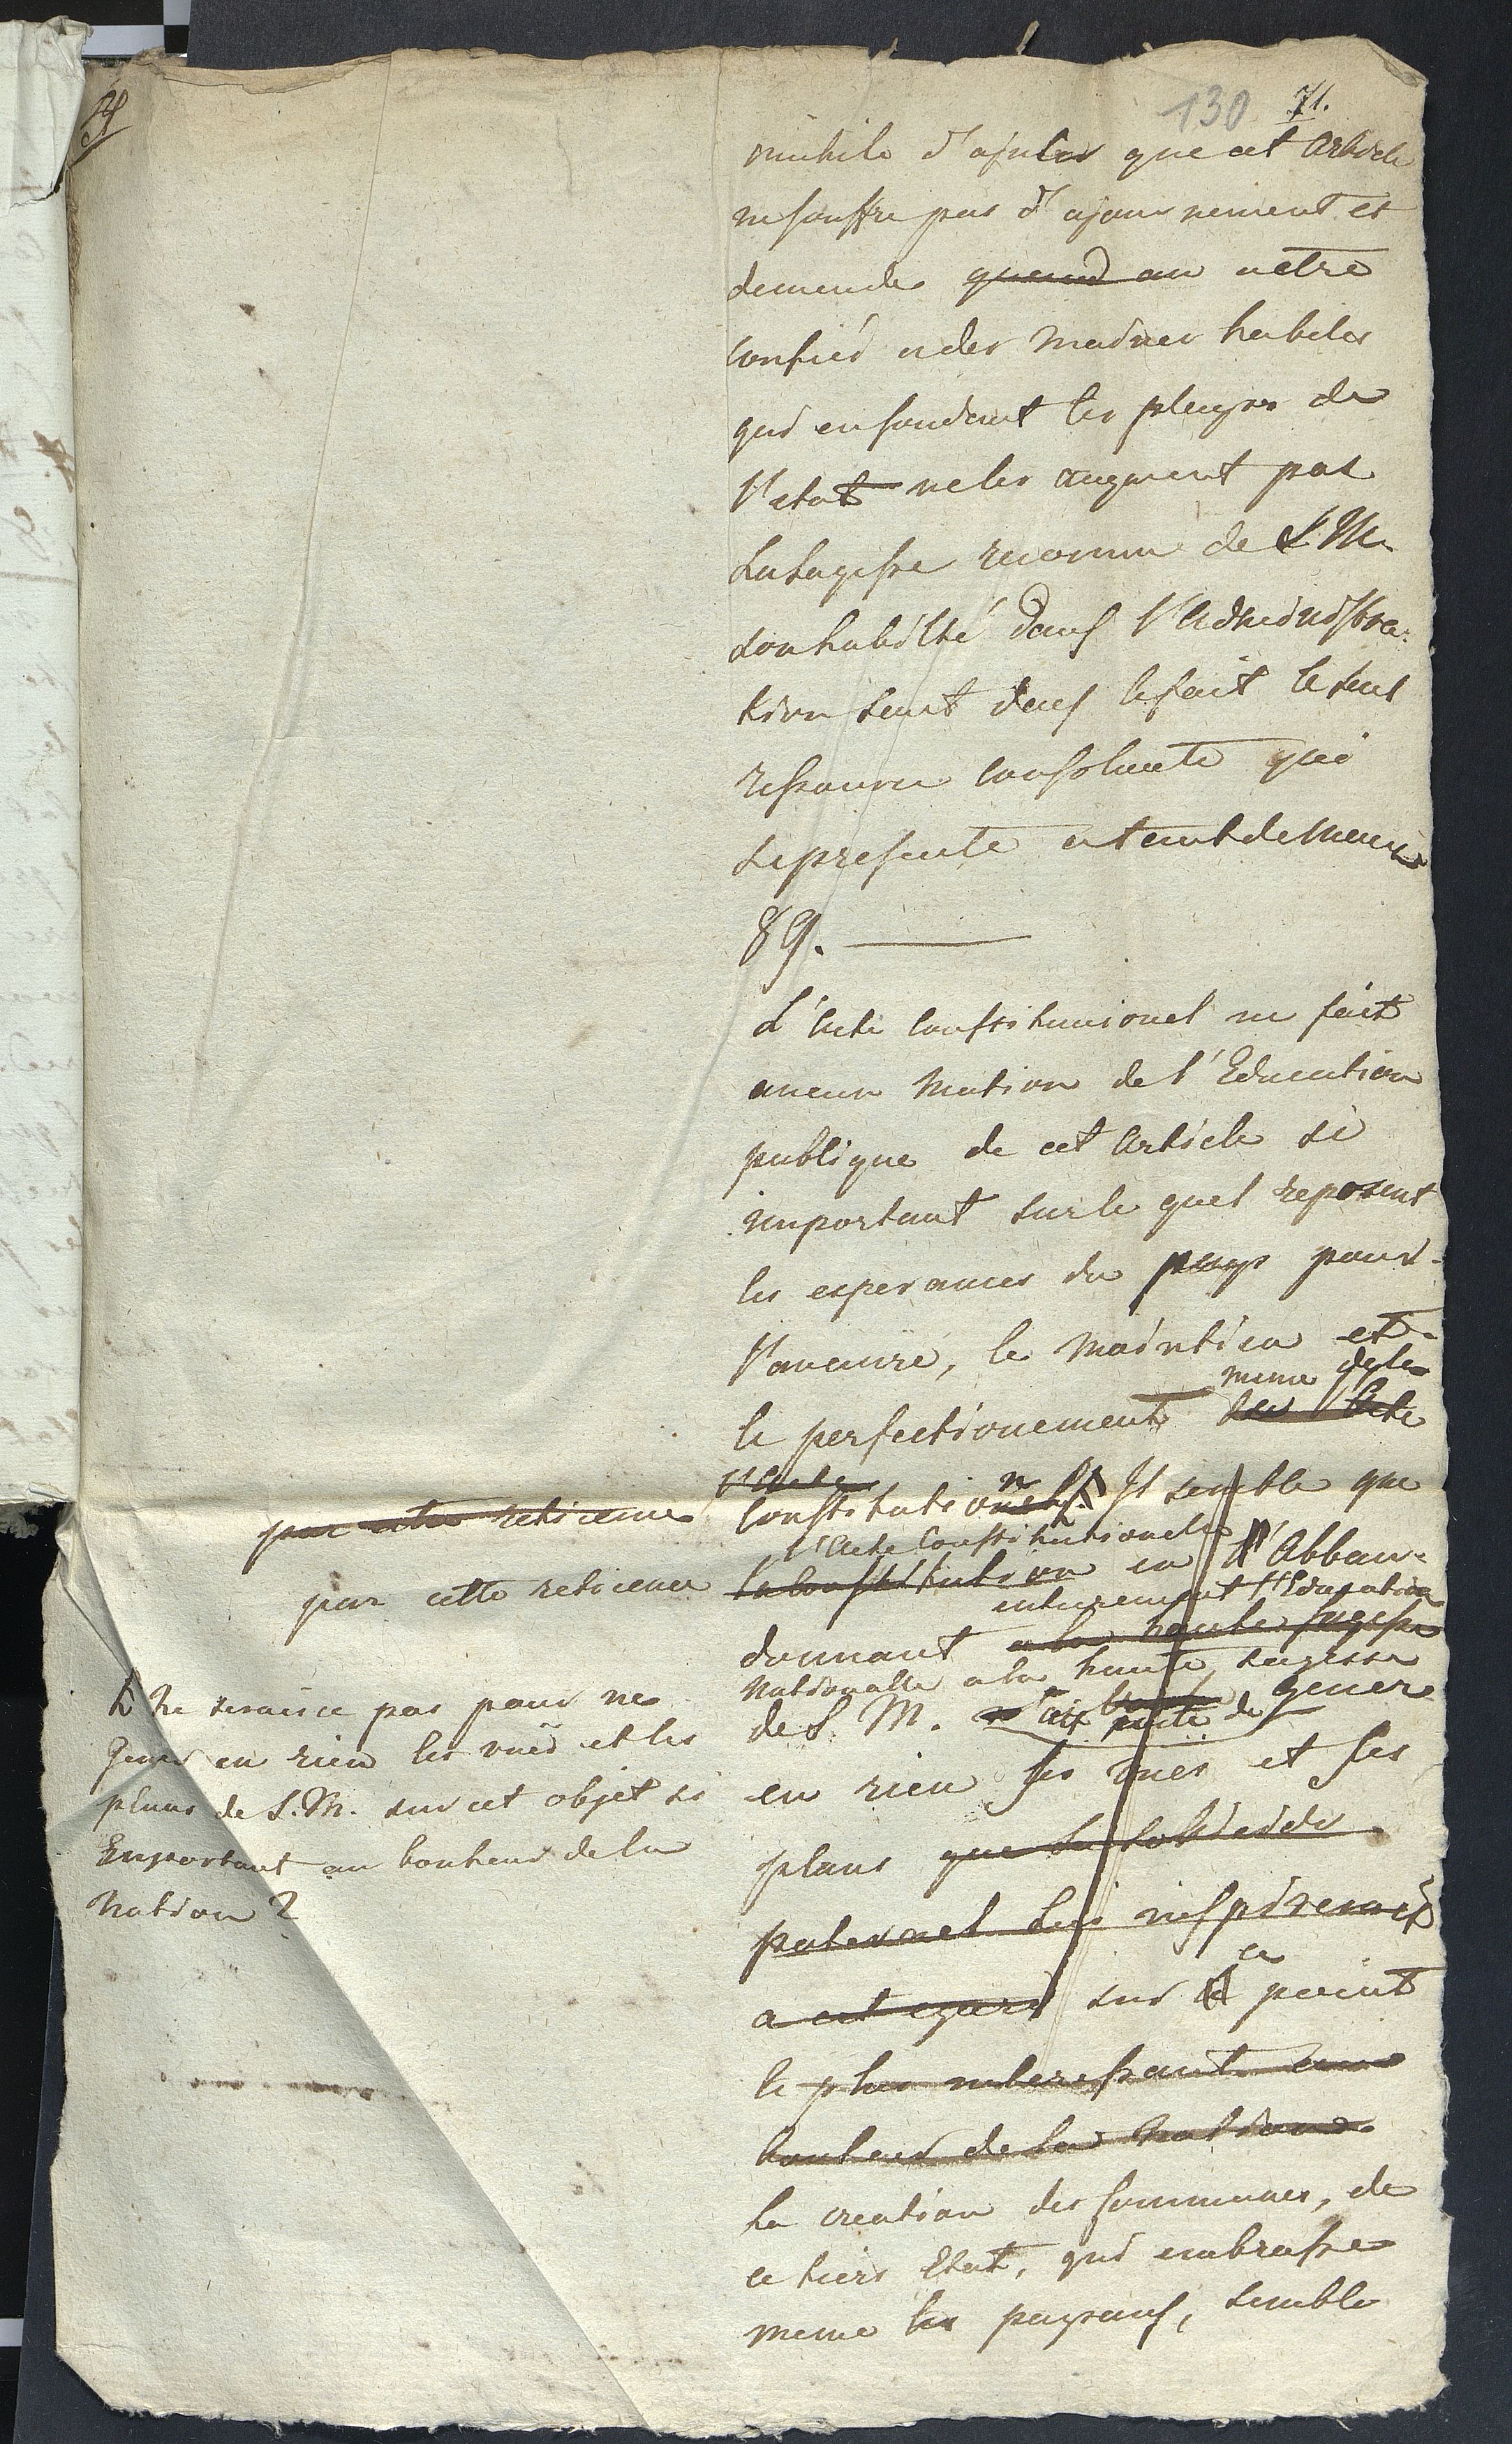 130 71.
inutile d'ajuter que cet Article
ne souffre pas d'ajournement et
demande quand au notre
confiéd a des mains habiles
qui en sondent les playes de
l'etat ne les augment pas
La sagesse reconnu de S. M.
son habilité dans l'Administra-
tion sont dans le fait le seul
ressource consolante qui
se presente a tant de maux
89.
L'Acte constitucionel ne fait
aucun mention de l'Education
publique de cet Article si
important sur le quel reposent
les esperances du pays pour
l'avenire, le maintien et
meme de la
le perfectionement de l'Acte
l'Acte
Constitution Il semble que
par cette reticence
l'Acte Constitutionele
par cette reticence
la constitution en l'Abban-
entierement l'Education
donnant a la haute sagesse
Nationalle a la haute sagesse
de S. M. gener
en rien ses vues et ses
plans que sa solicitude
paternel lui inspirerait
a cet egard sur ce point
le plus interessant au
bonheur de la Nation
La creation des communes, de
ce tiers Etat, qui embrasse
meme les paysans, semble
Ne serai ce pas pour ne
gener en rien les vues et les
plans de S. M. sur cet objet si
Important au bonheur de la
Nation ?